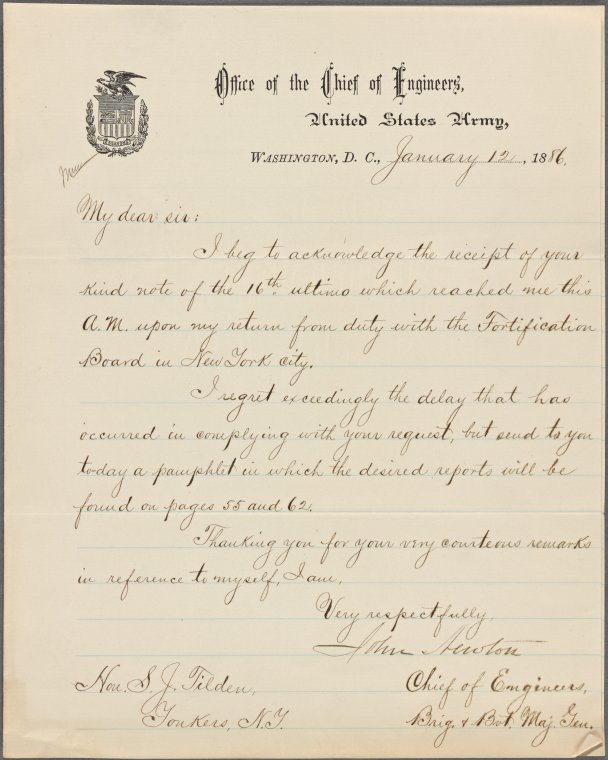 Office of the Chief of Engineers,
United States Army,
WASHINGTON, D. C., January 12, 1886.
My dear sir:
I beg to acknowledge the receipt of your
kind note of the 16th ultimo which reached me this
A.M. upon my return from duty with the Fortification
Board in New York city.
I regret exceedingly the delay that has
occurred in complying with your request, but send to you
to-day a pamphlet in which the desired reports will be
found on pages 55 and 62.
Thanking you for your very courteous remarks
in reference to myself, I am,
Very respectfully,
John Newton
Hon. S. J. Tilden,
Yonkers, N.Y.
Chief of Engineers,
Brig. & Bvt. Maj. Gen.